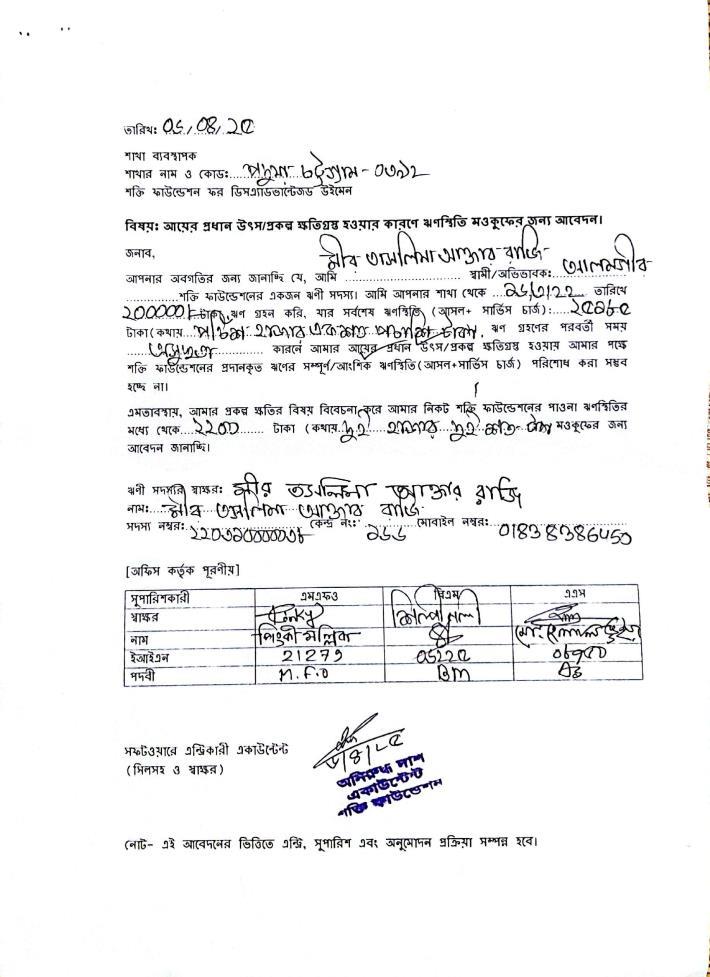 তারিখ: ০৬/০৪/২৫
শাখা ব্যবস্থাপক
শাখার নাম ও কোড:.....পদুয়া চট্টগ্রাম-০৩৯২
শক্তি ফাউন্ডেশন ফর ডিসএ্যাডভান্টেজড উইমেন
বিষয়: আয়ের প্রধান উৎস/প্রকল্প ক্ষতিগ্রস্থ হওয়ার কারণে ঋণস্থিতি মওকুফের জন্য আবেদন।
জনাব,
আপনার অবগতির জন্য জানাচ্ছি যে, আমি মীর তাসলিমা আক্তার রাজি স্বামী/অভিভাবক: আলমগীর
শক্তি ফাউন্ডেশনের একজন ঋণী সদস্য। আমি আপনার শাখা থেকে তারিখে
টাকা ঋণ গ্রহন করি, যার সর্বশেষ ঋণস্থিতি (আসল+ সার্ভিস চার্জ):
টাকা (কথায় একশত পঞ্চাশ টাকা, ঋণ গ্রহণের পরবর্তী সময়
অসুস্থতা কারনে আমার আয়ের প্রধান উৎস/প্রকল্প ক্ষতিগ্রস্থ হওয়ায় আমার পক্ষে
শক্তি ফাউন্ডেশনের প্রদানকৃত ঋণের সম্পূর্ণ/আংশিক ঋণস্থিতি(আসল+সার্ভিস চার্জ) পরিশোধ করা সম্ভব
হচ্ছে না।
এমতাবস্থায়, আমার প্রকল্প ক্ষতির বিষয় বিবেচনা করে আমার নিকট শক্তি ফাউন্ডেশনের পাওনা ঋণস্থিতির
মধ্যে থেকে....২২০০....... টাকা (কথায় দুই হাজার দুই শত টাকা মওকুফের জন্য
আবেদন জানাচ্ছি।
ঋণী সদস্যর স্বাক্ষর: মীর তাসলিমা আক্তার রাজি
নাম:....মীর তাসলিমা আক্তার রাজি
সদস্য নম্বর: কেন্দ্র নং: ১৬৬ মোবাইল নম্বর: 01838386450
[অফিস কর্তৃক পূরণীয়]
সুপারিশকারী এমএফও বিএম এএম
স্বাক্ষর Pinky
নাম পিংকী মল্লিক
ইআইএন 21279 05225
পদবী M.F.O BM
সফটওয়ারে এন্ট্রিকারী একাউন্টেন্ট
(সিলসহ ও স্বাক্ষর)
অনিরুদ্ধ দাশ
একাউন্টেন্ট
শক্তি ফাউন্ডেশন
নোট- এই আবেদনের ভিত্তিতে এন্ট্রি, সুপারিশ এবং অনুমোদন প্রক্রিয়া সম্পন্ন হবে।